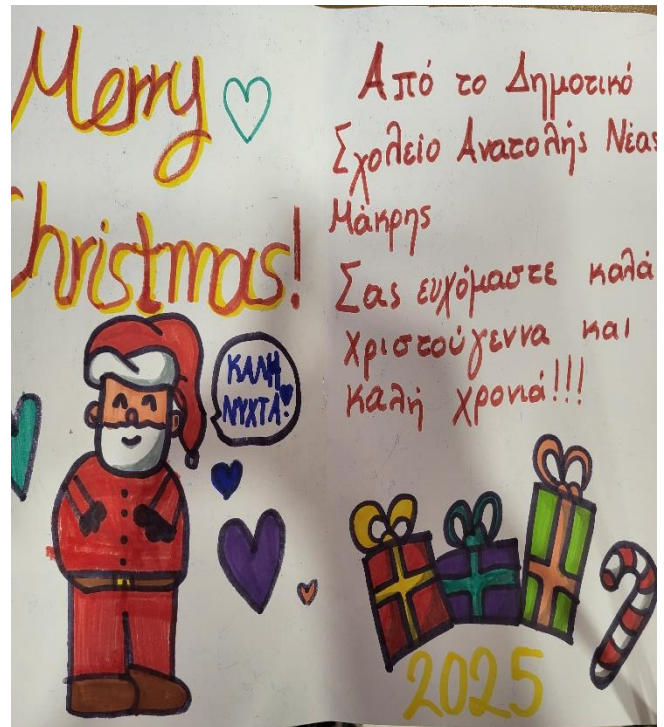 Merry
Christmas!
ΚΑΛΗ
ΝΥΧΤΑ!
Από το Δημοτικό
Σχολείο Ανατολής Νέας
Μάκρης
Σας ευχόμαστε καλά
χριστούγεννα και
καλή χρονιά!!!
2025